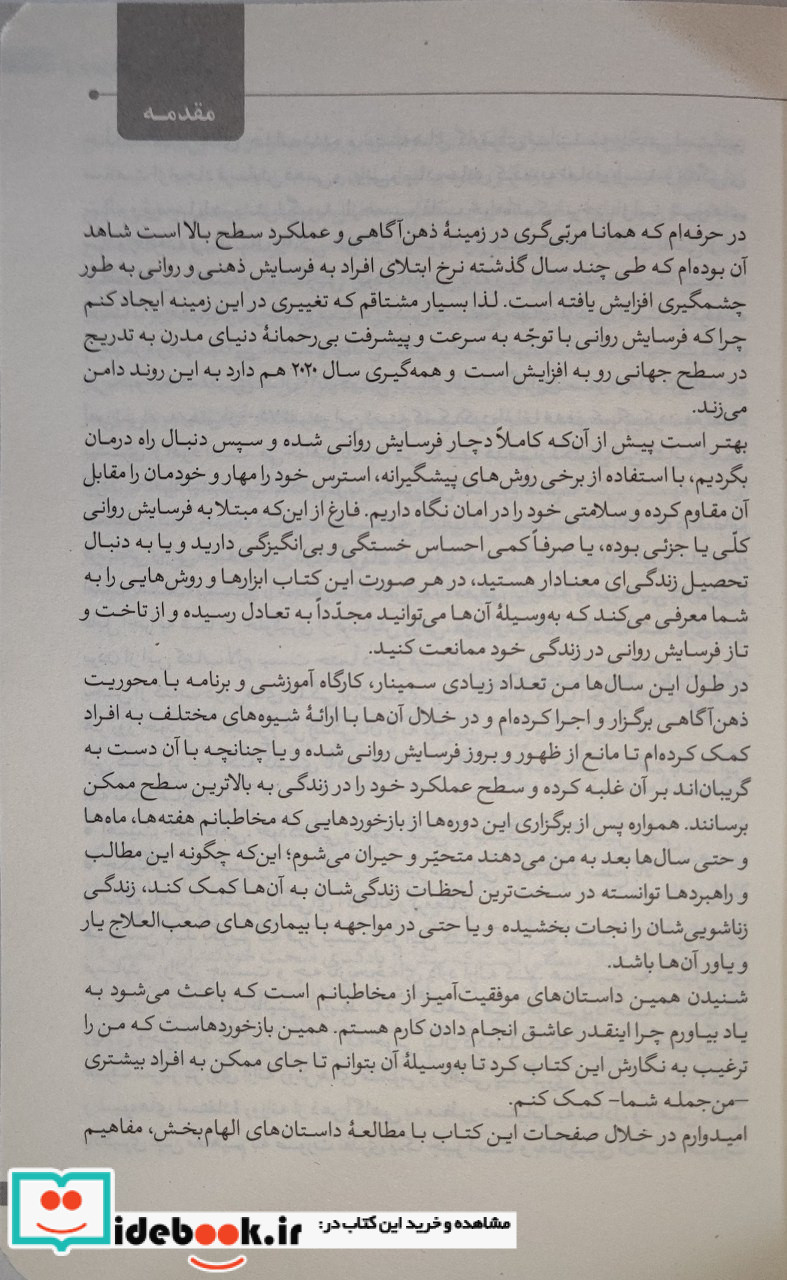 مقدمه
در حرفه‌ام که همانا مربّی‌گری در زمینهٔ ذهن‌آگاهی و عملکرد سطح بالا است شاهد
آن بوده‌ام که طی چند سال گذشته نرخ ابتلای افراد به فرسایش ذهنی و روانی به طور
چشمگیری افزایش یافته است. لذا بسیار مشتاقم که تغییری در این زمینه ایجاد کنم
چرا که فرسایش روانی با توجّه به سرعت و پیشرفت بی‌رحمانهٔ دنیای مدرن به تدریج
در سطح جهانی رو به افزایش است و همه‌گیری سال ۲۰۲۰ هم دارد به این روند دامن
می‌زند.
بهتر است پیش از آن‌که کاملاً دچار فرسایش روانی شده و سپس دنبال راه درمان
بگردیم، با استفاده از برخی روش‌های پیشگیرانه، استرس خود را مهار و خودمان را مقابل
آن مقاوم کرده و سلامتی خود را در امان نگاه داریم. فارغ از این‌که مبتلا به فرسایش روانی
کلّی یا جزئی بوده، یا صرفاً کمی احساس خستگی و بی‌انگیزگی دارید و یا به دنبال
تحصیل زندگی‌ای معنادار هستید، در هر صورت این کتاب ابزارها و روش‌هایی را به
شما معرفی می‌کند که به‌وسیلهٔ آن‌ها می‌توانید مجدّداً به تعادل رسیده و از تاخت و
تاز فرسایش روانی در زندگی خود ممانعت کنید.
در طول این سال‌ها من تعداد زیادی سمینار، کارگاه آموزشی و برنامه با محوریت
ذهن‌آگاهی برگزار و اجرا کرده‌ام و در خلال آن‌ها با ارائهٔ شیوه‌های مختلف به افراد
کمک کرده‌ام تا مانع از ظهور و بروز فرسایش روانی شده و یا چنانچه با آن دست به
گریبان‌اند بر آن غلبه کرده و سطح عملکرد خود را در زندگی به بالاترین سطح ممکن
برسانند. همواره پس از برگزاری این دوره‌ها از بازخوردهایی که مخاطبانم هفته‌ها، ماه‌ها
و حتی سال‌ها بعد به من می‌دهند متحیّر و حیران می‌شوم؛ این‌که چگونه این مطالب
و راهبردها توانسته در سخت‌ترین لحظات زندگی‌شان به آن‌ها کمک کند، زندگی
زناشویی‌شان را نجات بخشیده و یا حتی در مواجهه با بیماری‌های صعب‌العلاج یار
و یاور آن‌ها باشد.
شنیدن همین داستان‌های موفقیت‌آمیز از مخاطبانم است که باعث می‌شود به
یاد بیاورم چرا اینقدر عاشق انجام دادن کارم هستم. همین بازخوردهاست که من را
ترغیب به نگارش این کتاب کرد تا به‌وسیلهٔ آن بتوانم تا جای ممکن به افراد بیشتری
–من‌جمله شما– کمک کنم.
امیدوارم در خلال صفحات این کتاب با مطالعهٔ داستان‌های الهام‌بخش، مفاهیم
مشاهده و خرید این کتاب در:
idebook.ir